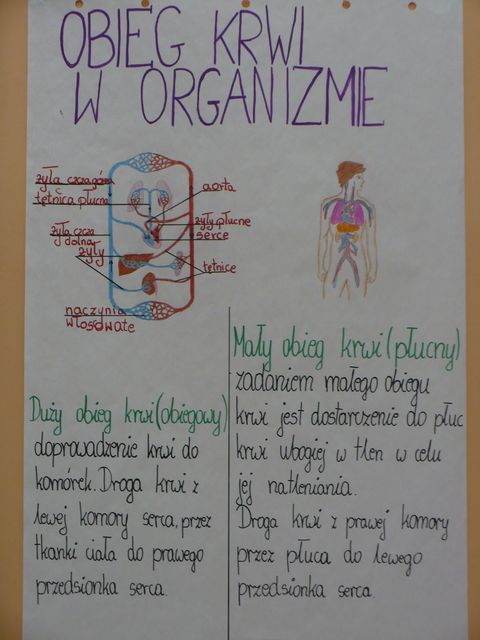 OBIEG KRWI
W ORGANIZMIE
żyła cząca górna
tętnica płucna
żyła czcza
dolna
żyły
naczynia
włosowate
aorta
żyły płucne
serce
tętnice
Duży obieg krwi (obiegowy)
doprowadzenie krwi do
komórek. Droga krwi z
lewej komory serca, przez
tkanki ciała do prawego
przedsionka serca.
Mały obieg krwi (płucny)
zadaniem małego obiegu
krwi jest dostarczenie do płuc
krwi ubogiej w tlen w celu
jej natleniania.
Droga krwi z prawej komory
przez płuca do lewego
przedsionka serca.